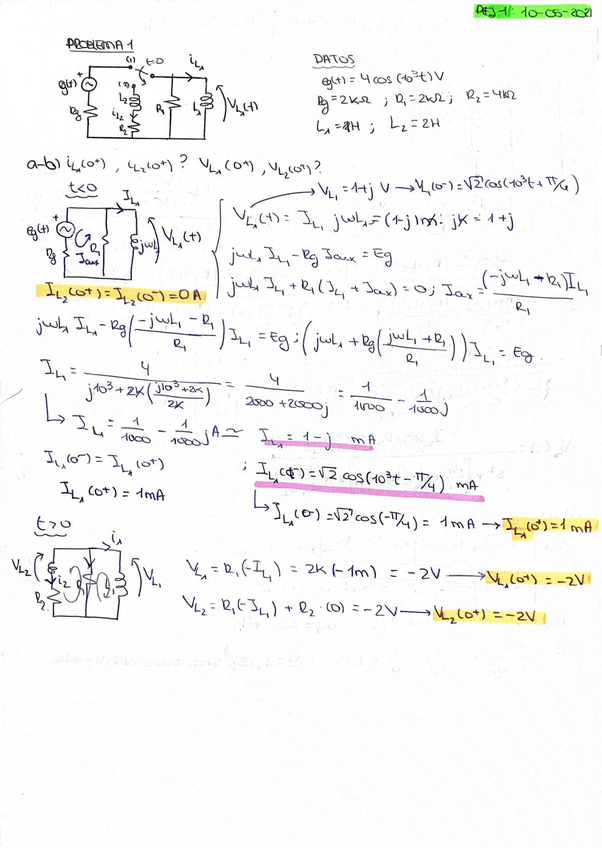 PEJ-1: 10-05-2021
PROBLEMA 1
(1) t=0 iL1
eg(t) + (2) L2 iL2 R2 R1 L1 VL1(t)
Rg
DATOS
eg(t) = 4 cos(10³t) V
Rg = 2kΩ ; R1 = 2kΩ ; R2 = 4kΩ
L1 = 1H ; L2 = 2H
a-b) iL1(0+) , iL2(0+) ? VL1(0+) , VL2(0+)?
t<0
IL1
eg(t) + Rg Jaux R1 jωL1 VL1(t)
VL1 = 1+j V → VL1(0-) = √2 cos(10³t + π/4)
VL1(t) = IL1 jωL1 = (1-j)1m · jK = 1+j
jωL1 IL1 - Rg Jaux = Eg
jωL1 IL1 + R1(IL1 + Jaux) = 0 ; Jaux = (-jωL1 - R1)IL1 / R1
IL2(0+) = IL2(0-) = 0A
jωL1 IL1 - Rg((-jωL1 - R1)/R1) IL1 = Eg ; (jωL1 + Rg((jωL1 + R1)/R1)) IL1 = Eg
IL1 = 4 / (j10³ + 2K((j10³ + 2K)/2K)) = 4 / (2000 + 2000j) = 1/1000 - 1/1000 j
IL1 = 1/1000 - 1/1000 j A ≃ IL1 = 1-j mA
IL1(0-) = IL1(0+) ; IL1(0-) = √2 cos(10³t - π/4) mA
IL1(0+) = 1mA IL1(0-) = √2 cos(-π/4) = 1mA → IL1(0+) = 1mA
t>0
i1
VL2 i2 R2 VL1
VL1 = R1(-IL1) = 2K(-1m) = -2V → VL1(0+) = -2V
VL2 = R1(-IL1) + R2·(0) = -2V → VL2(0+) = -2V